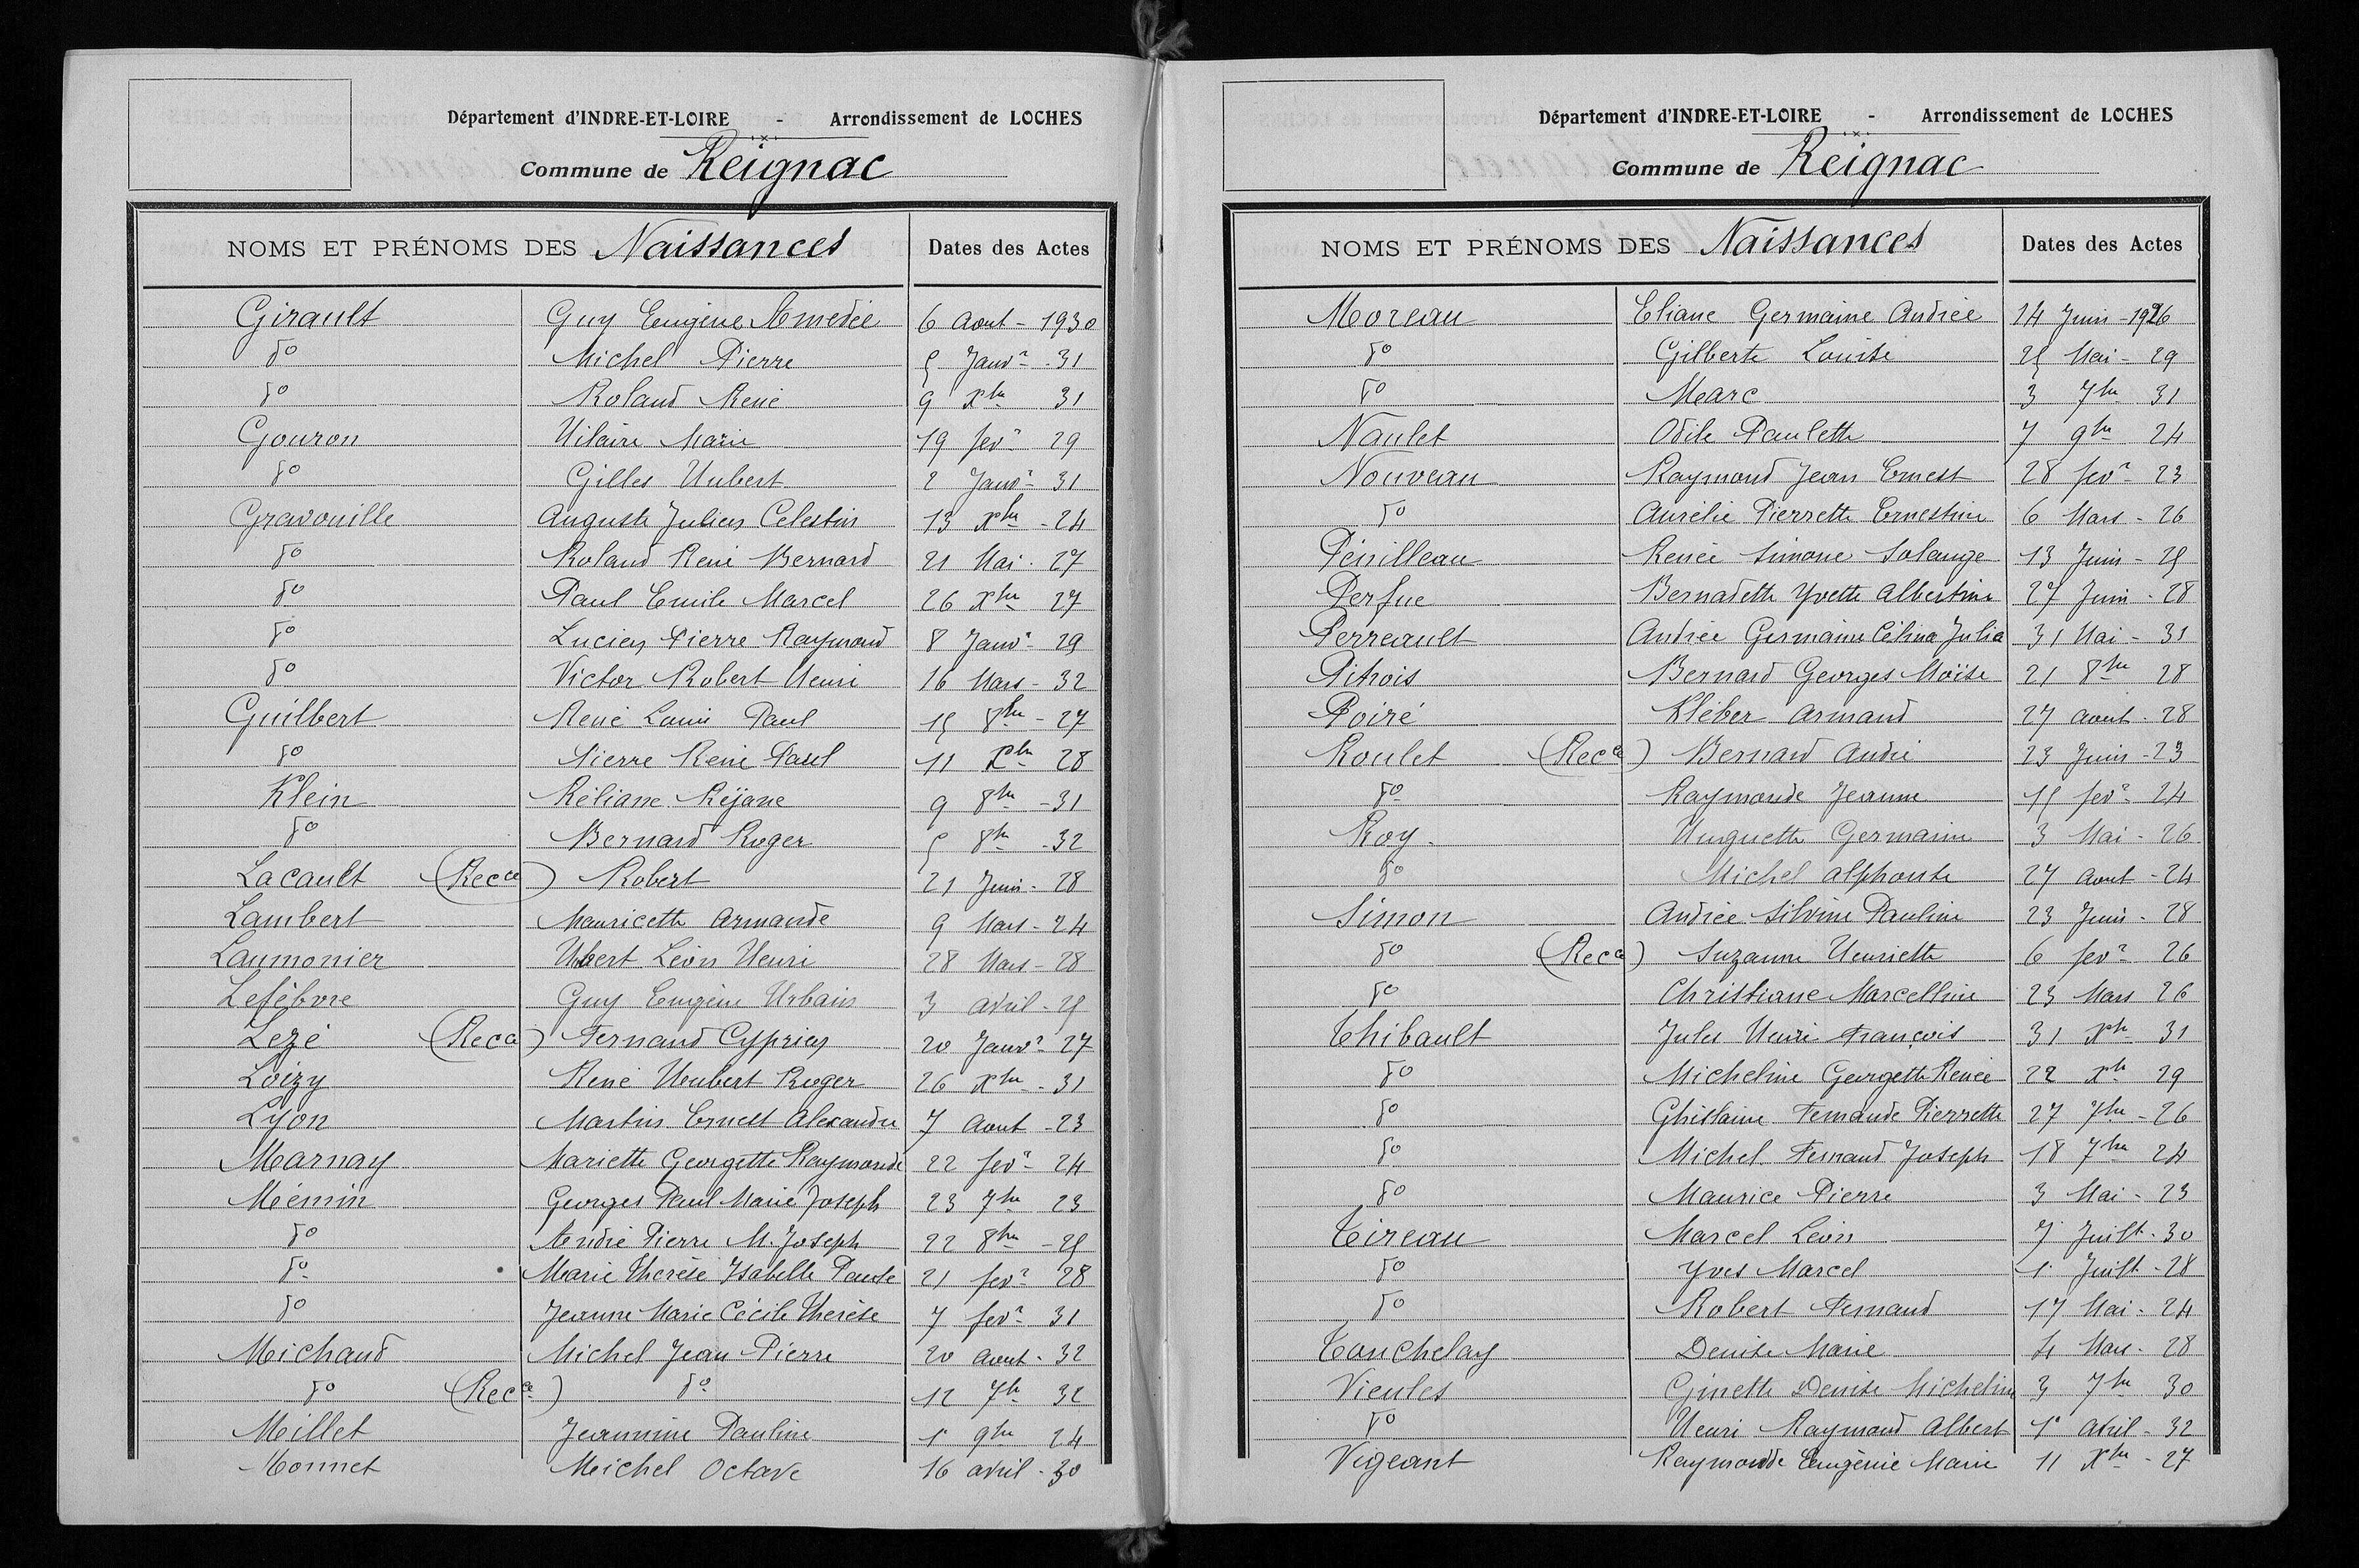 Département d'INDRE-ET-LOIRE - Arrondissement de LOCHES
Commune de Reignac
NOMS ET PRÉNOMS DES Naissances Dates des Actes
Girault Guy Eugène Amedée 6 Aout - 1930
do Michel Pierre 5 Janvr - 31
do Roland René 9 Xbre 31
Gouron Hilaire Marie 19 fevr 29
do Gilles Hubert 2 Janvr - 31
Gravouille Auguste Julien Celestin 13 Xbre - 24
do Roland René Bernard 21 Mai - 27
do Paul Emile Marcel 26 Xbre 27
do Lucien Pierre Raymond 8 Janvr - 29
do Victor Robert Henri 16 Mars - 32
Guilbert René Louis Paul 15 8bre - 27
do Pierre René Paul 11 Xbre 28
Klein Réliane Réjane 9 8bre - 31
do Bernard Roger 5 8bre - 32
Lacault (Recce) Robert 21 Juin - 28
Lambert Mauricette Armande 9 Mars - 24
Laumonier Hubert Léon Henri 28 Mars - 28
Lefèbvre Guy Eugène Urbain 3 avril - 25
Lezé (Recce) Fernand Cyprien 20 Janvr - 27
Loizy René Hubert Roger 26 Xbre - 31
Lyon Martin Ernest Alexandre 7 Aout - 23
Marnay Mariette Georgette Raymonde 22 fevr - 24
Mémin Georges Paul Marie Joseph 23 7bre 23
do André Pierre M. Joseph 22 8bre - 25
do Marie Thérèse Isabelle Paule 21 fevr 28
do Jeanne Marie Cécile Thérèse 7 fevr - 31
Michaud Michel Jean Pierre 20 Aout - 32
do (Recce) do 12 7bre 32
Millet Jeannine Pauline 1er 9bre 24
Monnet Michel Octave 16 avril - 30
Département d'INDRE-ET-LOIRE - Arrondissement de LOCHES
Commune de Reignac
NOMS ET PRÉNOMS DES Naissances Dates des Actes
Moreau Eliane Germaine Andrée 14 Juin - 1926
do Gilberte Louise 25 Mai - 29
do Marc 3 7bre 31
Naulet Odile Paulette 7 9bre 24
Nouveau Raymond Jean Ernest 28 fevr - 23
do Aurélie Pierrette Ernestine 6 Mars - 26
Pénilleau Renée Simone Solange 13 Juin - 25
Perfue Bernadette Yvette Albertine 27 Juin - 28
Perreault Andrée Germaine Célina Julia 31 Mai - 31
Pitrois Bernard Georges Moïse 21 8bre 28
Poiré Kléber Armand 27 aout - 28
Roulet (Recce) Bernard André 23 Juin - 23
do Raymonde Jeanne 15 fevr - 24
Roy Huguette Germaine 3 Mai - 26
do Michel Alphonse 27 Aout - 24
Simon Andrée Silvine Pauline 23 Juin - 28
do (Recce) Suzanne Henriette 6 fevr 26
do Christiane Marcelline 23 Mars 26
Thibault Jules Henri François 31 Xbre 31
do Micheline Georgette Renée 22 Xbre 29
do Ghislaine Fernande Pierrette 27 7bre - 26
do Michel Fernand Joseph 18 7bre 24
do Maurice Pierre 3 Mai - 23
Tireau Marcel Léon 7 Juillt - 30
do Yves Marcel 1er Juillt - 28
do Robert Fernand 17 Mai - 24
Touchelay Denise Marie 4 Mars - 28
Vieules Ginette Denise Micheline 3 7bre 30
do Henri Raymond Albert 1er avril - 32
Vigeant Raymonde Eugénie Marie 11 Xbre - 27